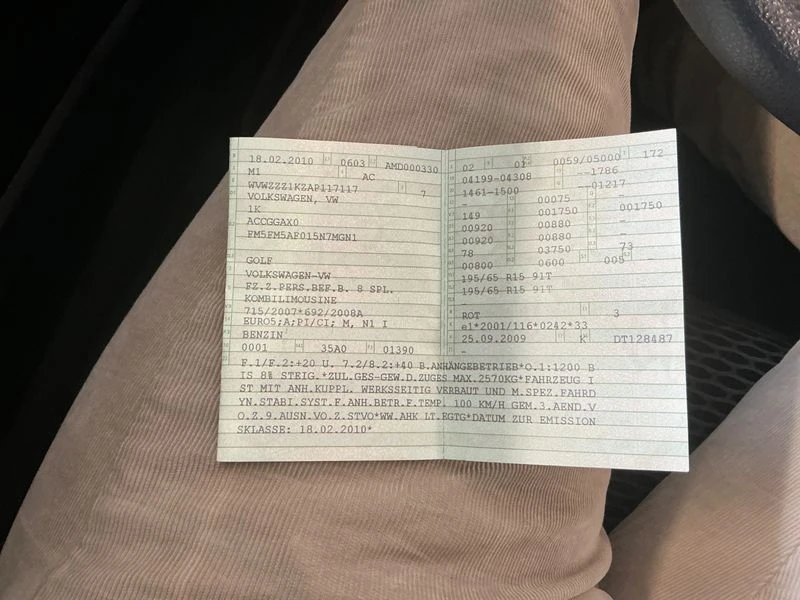 18.02.2010 0603 AMD000330
M1 AC
WVWZZZ1KZAP117117 7
VOLKSWAGEN, VW
1K
ACCGGAX0
FM5FM5AF015N7MGN1
GOLF
VOLKSWAGEN-VW
FZ.Z.PERS.BEF.B. 8 SPL.
KOMBILIMOUSINE
715/2007*692/2008A
EURO5;A;PI/CI; M, N1 I
BENZIN
0001 35A0 01390
02 01 0059/05000 172
04199-04308 --1786
1461-1500 --01217
- 00075 -
149 001750 001750
00920 00880 -
00920 00880 -
78 03750 73
00800 0600 005 -
195/65 R15 91T
195/65 R15 91T
-
ROT 3
e1*2001/116*0242*33
25.09.2009 K DT128487
-
F.1/F.2:+20 U. 7.2/8.2:+40 B.ANHÄNGEBETRIEB*O.1:1200 B
IS 8% STEIG.*ZUL.GES-GEW.D.ZUGES MAX.2570KG*FAHRZEUG I
ST MIT ANH.KUPPL. WERKSSEITIG VERBAUT UND M.SPEZ.FAHRD
YN.STABI.SYST.F.ANH.BETR.F.TEMP. 100 KM/H GEM.3.AEND.V
O.Z.9.AUSN.VO.Z.STVO*WW.AHK LT.EGTG*DATUM ZUR EMISSION
SKLASSE: 18.02.2010*